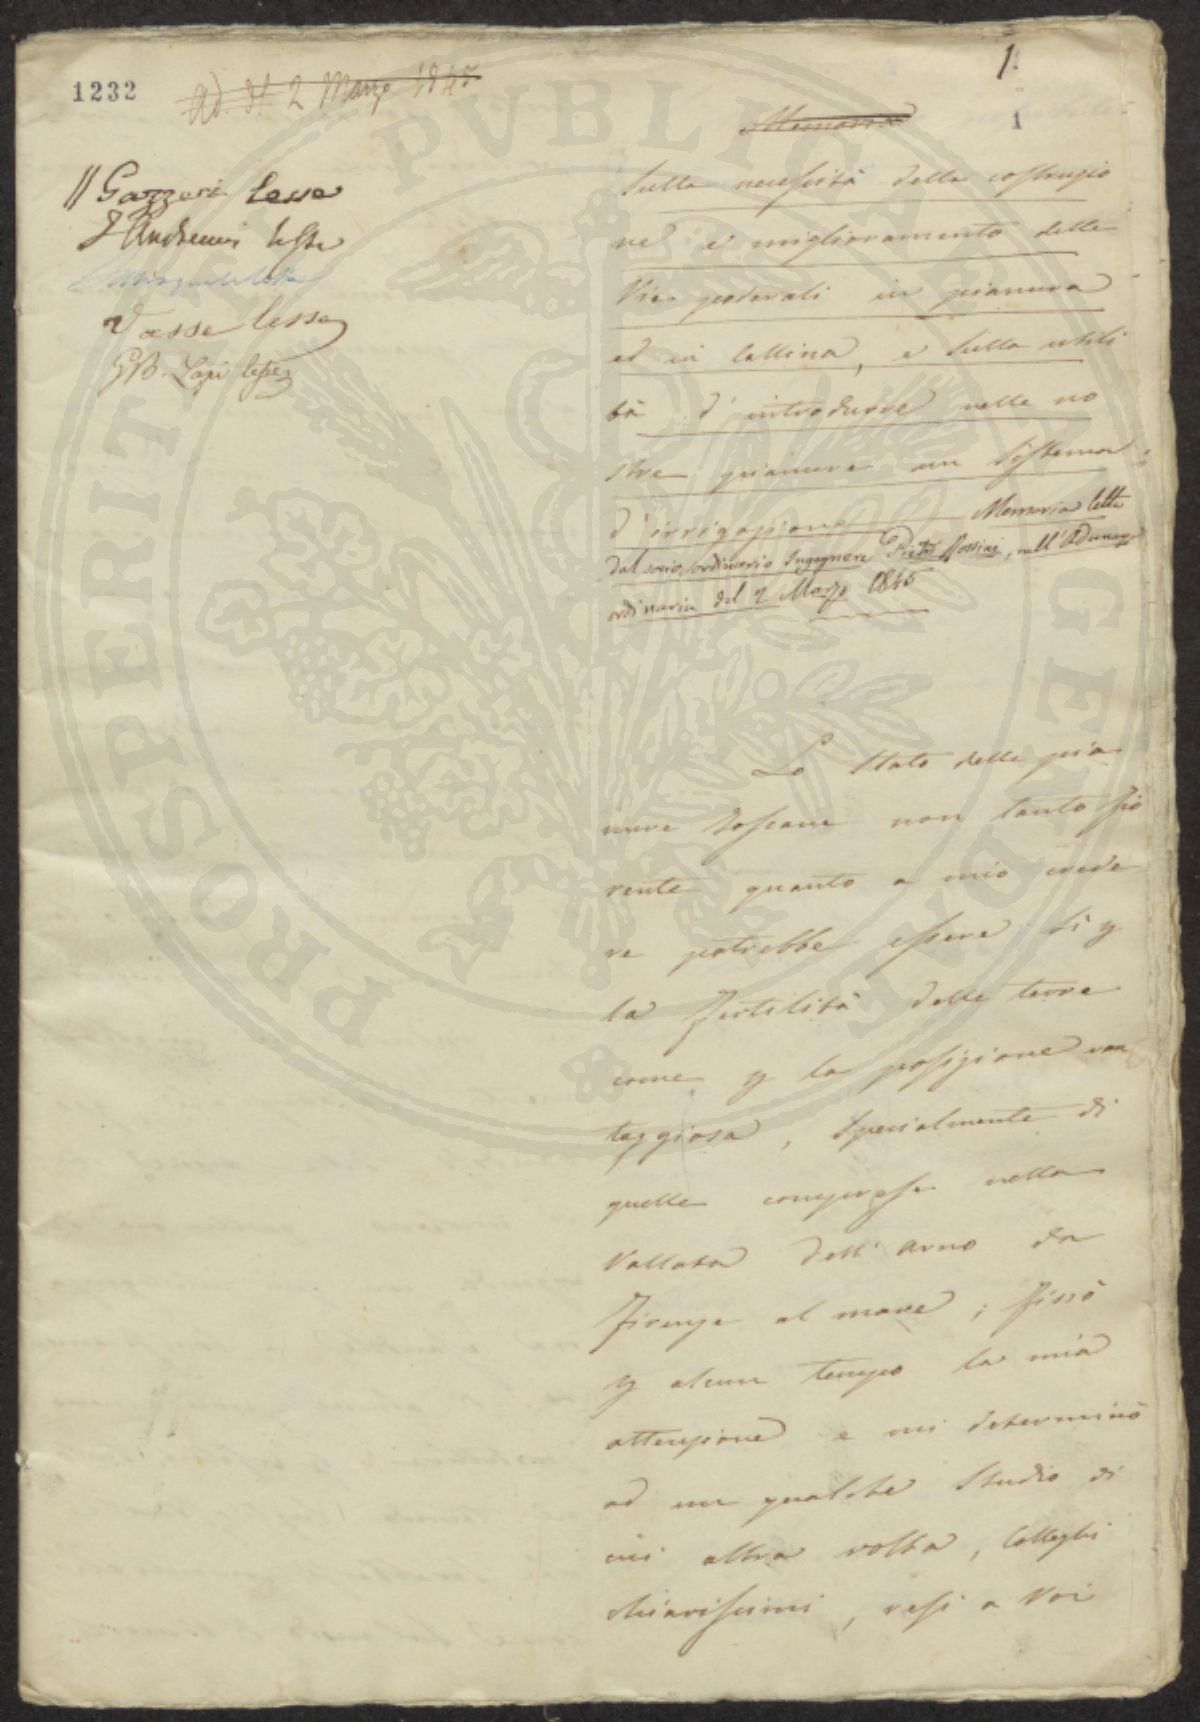 1232
Ad. d. 2 Marzo 1845
1.
1
Gazzeri lesse
lesse
Vasse lesse
GB. Lapi lesse
Memoria
Sulla necessità della costruzio
ne e miglioramento delle
Vie poderali in pianura
ed in Collina, e sulla utili
tà d'introdurre nelle no
stre pianure un sistema
d'irrigazione Memoria letta
dal socio ordinario Ingegnere Pietro Rossini, nell'Adunanza
ordinaria del 2 Marzo 1845
Lo stato delle pia
nure toscane non tanto fio
rente quanto a mio crede
re potrebbe essere si p
la fertilità delle terre
come p la posizione van
taggiosa, specialmente di
quelle comprese nella
Vallata dell'Arno da
Firenze al mare, fissò
p alcun tempo la mia
attenzione e mi determinò
ad un qualche studio di
cui altra volta, Colleghi
chiarissimi, resi a Voi
PROSPERITATI PUBLICAE AUGENDAE